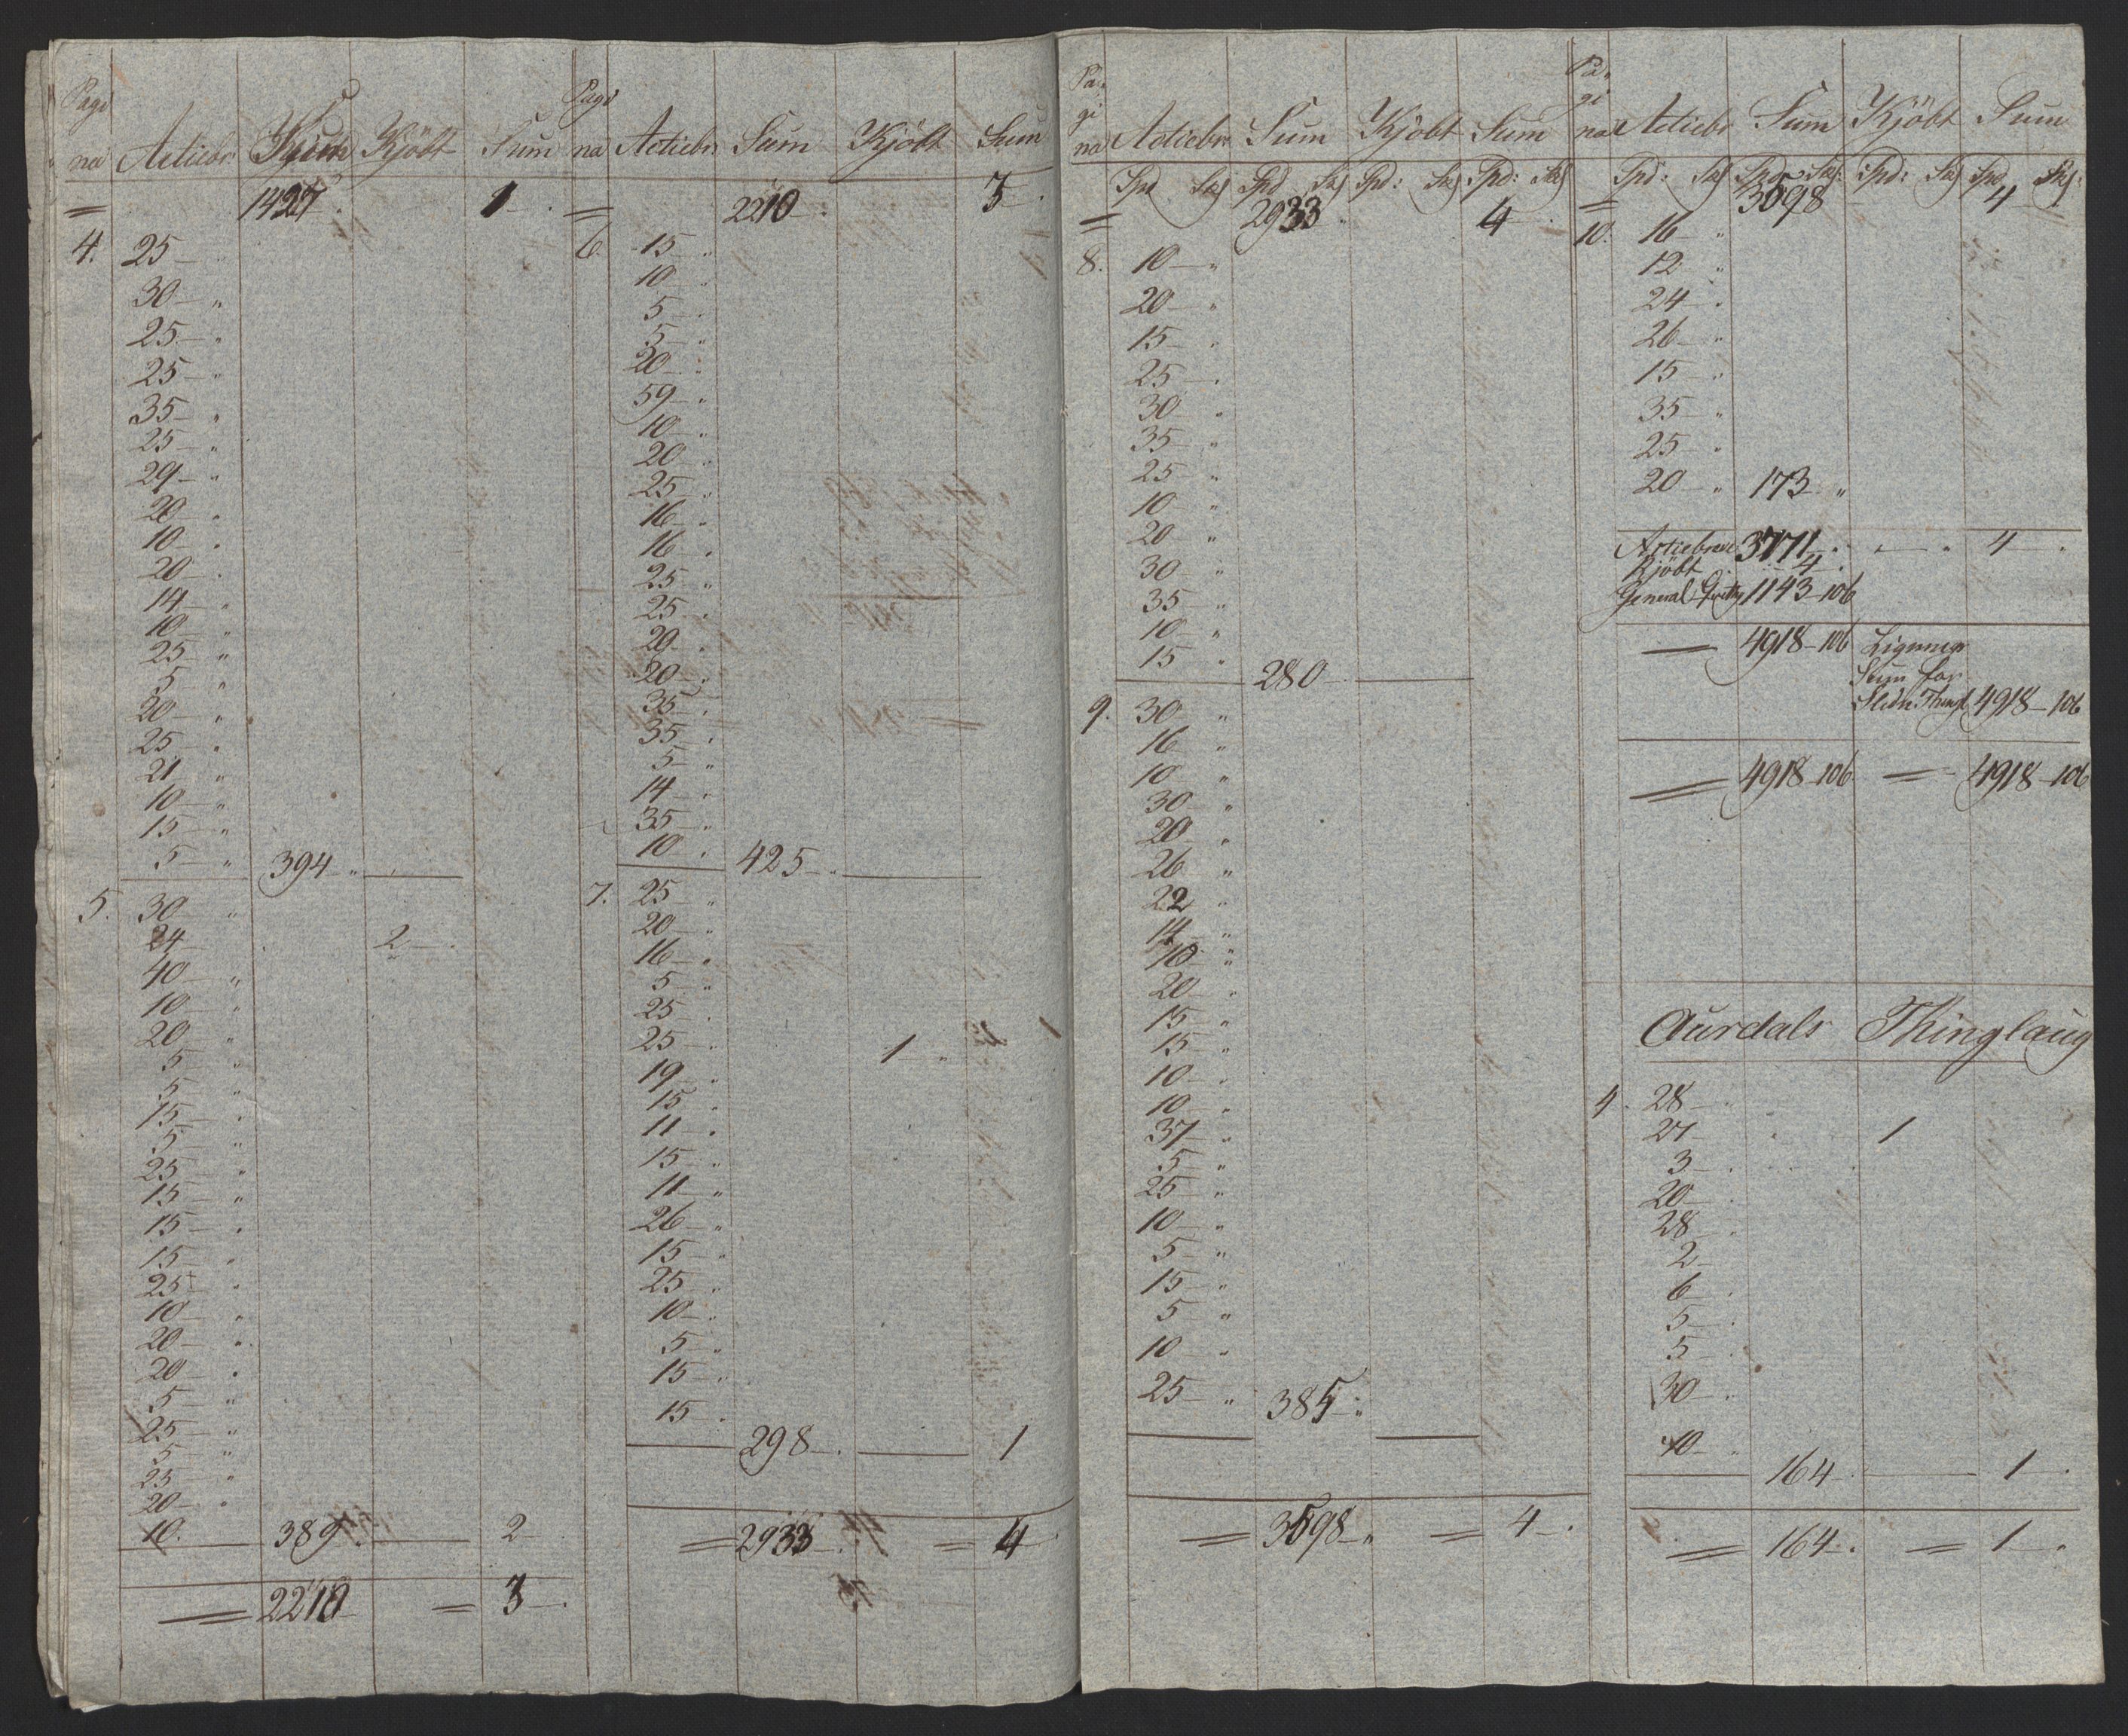 Pagi
na Actiebr: Sum Kjöbt Sum
= 1427 1
4. 25
30 "
25 "
25 "
35 "
25 "
29 "
20 "
10 "
20 "
14 "
10 "
25 "
5 "
20 "
25 "
21 "
10 "
15 "
5 " 394 "
5. 30 "
24 2
40 "
10 "
20 "
5 "
5 "
15 "
5 "
25 "
15 "
15 "
15 "
25 "
10 "
20 "
20 "
5 "
25 "
5 "
25 "
20 "
10 389 2
= 2210 = 3
Pagi
na Actiebr: Sum Kjöbt Sum
= 2210 3
6. 15 "
10 "
5 "
5 "
20 "
59 "
10 "
20 "
25 "
16 "
16 "
25 "
25 "
20 "
20 "
35 "
35 "
5 "
14 "
35 "
10 " 425
7. 25 "
20 "
16 "
5 "
25 "
25 " 1 "
19 "
15 "
11 "
15 "
11 "
26 "
15 "
25 "
10 "
5 "
15 "
15 "
298 1
= 2933 = 4
Pa-
gi
na Actiebr Sum Kjöbt Sum
Spd Skj Spd Skj Spd: Skj Spd: Skj
= 2933 4
8. 10 "
20 "
15 "
25 "
30 "
35 "
25 "
10 "
20 "
30 "
35 "
10 "
15 "
280
9. 30 "
16 "
10 "
30 "
20 "
26 "
22 "
14 "
10 "
20 "
15 "
15 "
10 "
10 "
37 "
5 "
25 "
10 "
5 "
15 "
5 "
10 "
25 " 385 "
= 3598 " = 4
Pa-
gi
na Actiebr Sum Kjöbt Sum
Spd: Skj Spd Skj: Spd: Skj Spd Skj:
= 3598 4
10. 16 "
12 "
24 "
26 "
15 "
35 "
25 "
20 " 173 "
Actiebreve 3771 " 4
Kjöbt 4
General 1143-106
= 4918-106 Lignings
Sum for
Thingl 4918-106
= 4918-106 = 4918-106
Aurdals Thinglaug
4. 28
27 1
3
20
28
2
6
5
5
30
40
164 1
= 164 = 1